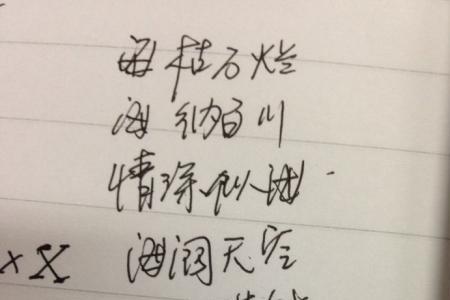 海枯石烂
海纳百川
情深似海
x X 海阔天空